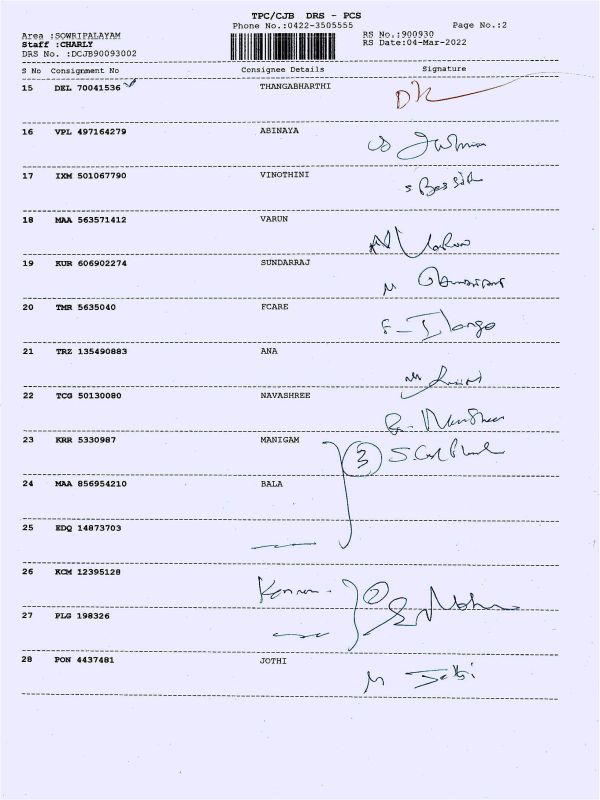 TPC/CJB DRS - PCS
Phone No.:0422-3505555 Page No.:2
Area :SOWRIPALAYAM RS No.:900930
Staff :CHARLY RS Date:04-Mar-2022
DRS No. :DCJB90093002
S No Consignment No Consignee Details Signature
15 DEL 70041536 THANGABHARTHI
16 VPL 497164279 ABINAYA
17 IXM 501067790 VINOTHINI
18 MAA 563571412 VARUN
19 KUR 606902274 SUNDARRAJ
20 TMR 5635040 FCARE
21 TRZ 135490883 ANA
22 TCG 50130080 NAVASHREE
23 KRR 5330987 MANIGAM 3
24 MAA 856954210 BALA
25 EDQ 14873703
26 KCM 12395128 2
27 PLG 198326
28 PON 4437481 JOTHI